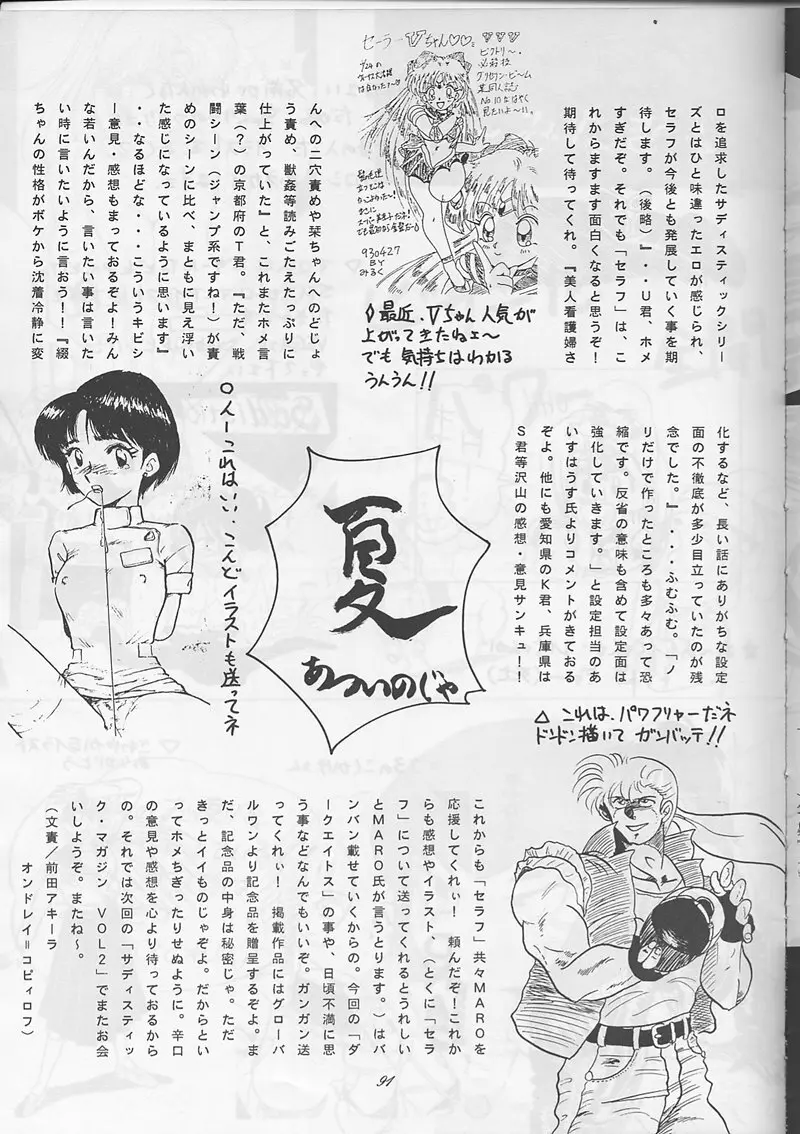 ロを追求したサディスティックシリー
ズとはひと味違ったエロが感じられ、
セラフが今後とも発展していく事を期
待します。（後略）』・・U君、ホメ
すぎだぞ。それでも「セラフ」は、こ
れからますます面白くなると思うぞ！
期待して待ってくれ。『美人看護婦さ
んへの二穴責めや栞ちゃんへのどじょ
う責め、獣姦等読みごたえたっぷりに
仕上がっていた』と、これまたホメ言
葉（？）の京都府のT君。『ただ、戦
闘シーン（ジャンプ系ですね！）が責
めのシーンに比べ、まともに見え浮い
た感じになっているように思います』
・・なるほどな・・・こういうキビシ
ー意見・感想もまっておるぞよ！みん
な若いんだから、言いたい事は言いた
い時に言いたいように言おう！！『綴
ちゃんの性格がボケから沈着冷静に変
セーラーVちゃん♡♡
ビクトリー・
必殺技
クレセント・ビーム
某同人誌
No.10はやく
見たいよ〜い。
930427
BY
みるく
◊最近、Vちゃん人気が
上がってきたねェ〜
でも気持ちはわかる
うんうん!!
化するなど、長い話にありがちな設定
面の不徹底が多少目立っていたのが残
念でした。』・・・ふむふむ。「ノ
リだけで作ったところも多々あって恐
縮です。反省の意味も含めて設定面は
強化していきます。」と設定担当のあ
いすはうす氏よりコメントがきておる
ぞよ。他にも愛知県のK君、兵庫県は
S君等沢山の感想・意見サンキュ！！
夏
あついのじゃ
○んーこれはいい、こんどイラストも送ってネ
△ これは、パワフリャーだネ
ドンドン描いて ガンバッテ!!
これからも「セラフ」共々MAROを
応援してくれぃ！頼んだぞ！これか
らも感想やイラスト、（とくに「セラ
フ」について送ってくれるとうれしい
とMARO氏が言うとります。）はバ
ンバン載せていくからの。今回の「ダ
ークエイトス」の事や、日頃不満に思
う事などなんでもいいぞ。ガンガン送
ってくれぃ！　掲載作品にはグローバ
ルワンより記念品を贈呈するぞよ。ま
だ、記念品の中身は秘密じゃ。ただ
きっとイイものじゃぞよ。だからとい
ってホメちぎったりせぬように。辛口
の意見や感想を心より待っておるから
の。それでは次回の「サディスティッ
ク・マガジン　VOL2」でまたお会
いしようぞ。またね〜。
（文責／前田アキーラ
オンドレイ＝コピィロフ）
91